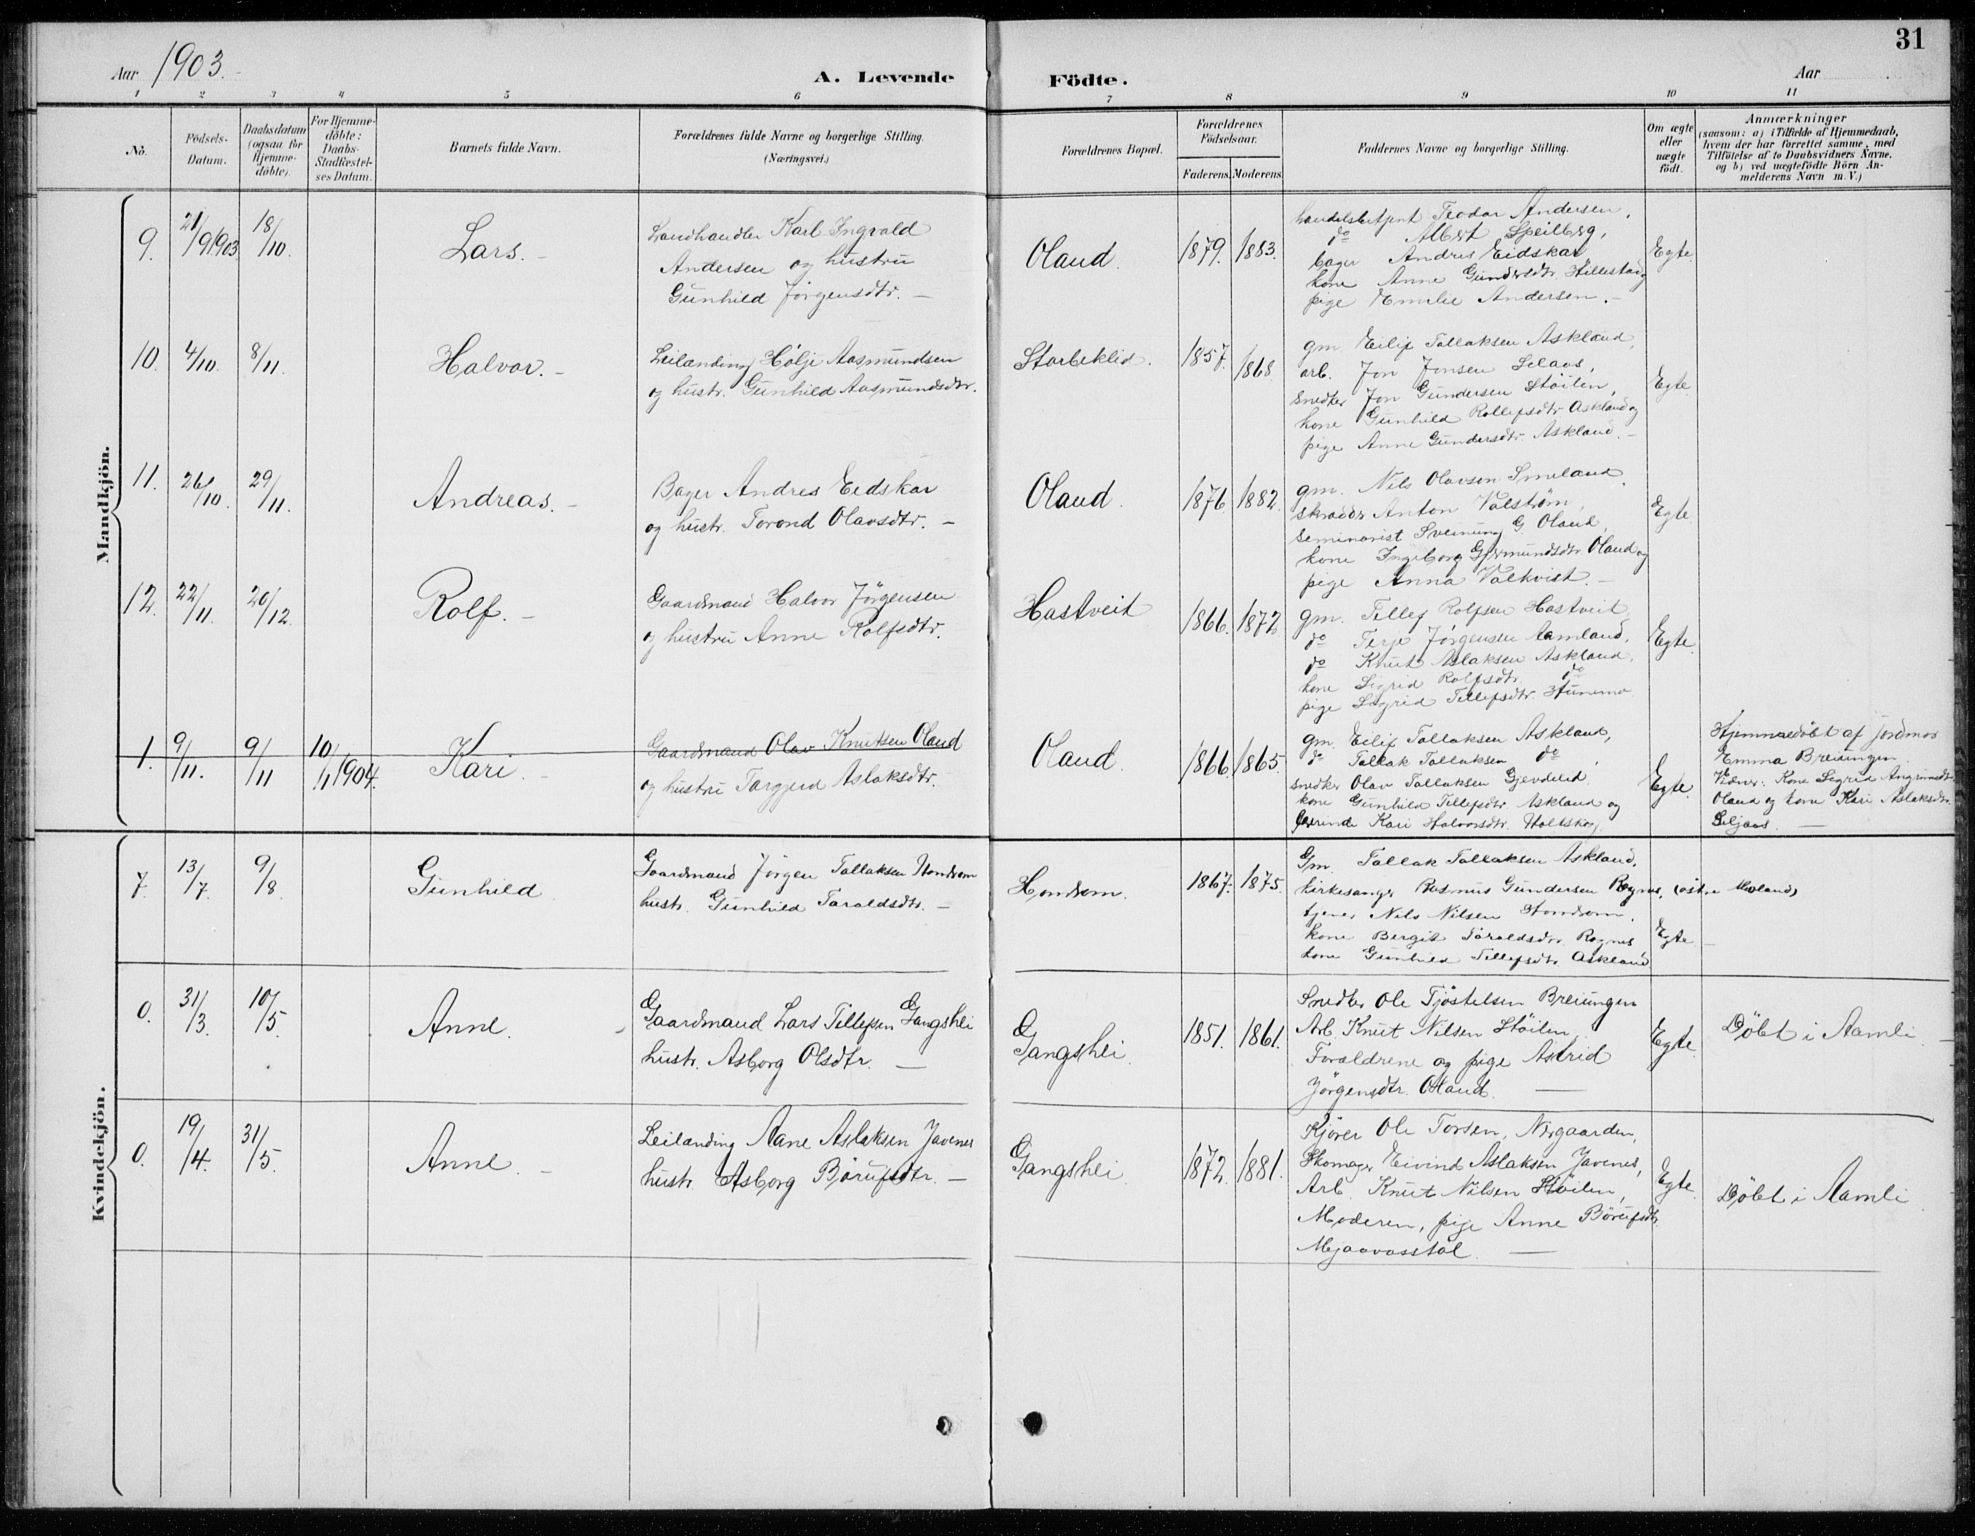 31
Aar 1903.
A. Levende Födte.
Aar
1 2 3 4 5 6 7 8 9 10 11
No.
Födsels-Datum.
Daabsdatum (ogsaa for Hjemme-döbte).
For Hjemme-döbte: Daabs-Stadfæstel-ses Datum.
Barnets fulde Navn.
Forældrenes fulde Navne og borgerlige Stilling.
(Næringsvei.)
Forældrenes Bopæl.
Forældrenes Födselsaar.
Faderens. Moderens.
Faddernes Navne og borgerlige Stilling.
Om ægte eller uægte födt.
Anmærkninger
(saasom: a) i Tilfælde af Hjemmedaab,
hvem der har forrettet samme, med
Tilföielse af to Daabsvidners Navne,
og b) ved uægtefödte Börn An-
melderens Navn m. V.)
Mandkjön.
9. 21/9 1903 18/10. Lars.
Landhandler Karl Ingvald
Andersen og hustru
Gunhild Jørgensdtr.
Oland. 1879. 1883.
handelsbetjent Teodor Andersen,
do Albert Speilberg,
bager Andres Eidskar,
kone Anne Gundersdtr.
pige Emilie Andersen.
Egte.
10. 4/10. 8/11. Halvor.
Leilænding Hølje Aasmundsen
og hustr. Gunhild Aasmundsdtr.
Storbeklid. 1857. 1868
gm. Eilif Tallaksen Askland,
arb. Jon Jonsen Selaas,
snedker Jon Gundersen Støilen,
kone Gunhild Rollefsdtr. Askland og
pige Anne Gundersdtr. Askland.
Egte.
11. 26/10. 29/11. Andreas.
Bager Andres Eidskar
og hustr. Torond Olavsdtr.
Oland. 1876. 1882.
gm. Nils Olavson Smeland,
skræder Anton Valstrøm,
seminarist Sveinung G. Oland,
kone Ingeborg Germundsdtr. Oland og
pige Anna Valkvist.
Egte
12. 22/11. 20/12. Rolf.
Gaardmand Halvor Jørgensen
og hustru Anne Rolfsdtr.
Hastveit 1866. 1872
gm. Tellef Rolfsen Hastveit,
do Terje Jørgensen Aamland,
do Knut Aslaksen Askland,
kone Sigrid Rolfsdtr. do
pige Sigrid Tellefsdtr.
Egte.
1. 9/11. 9/11 10/1 1904. Kari.
Gaardmand Olav Knutsen Oland
og hustru Targjerd Aslaksdtr.
Oland. 1866. 1865.
gm. Eilif Tallaksen Askland,
do Tallak Tallaksen do,
snedker Olav Tallaksen Gjevdelid
kone Gunhild Tellefsdtr. Askland og
Kari Halvorsdtr. Holtskog
Egte.
Hjemmedöbt af Jordmor
Emma Breiungen.
Vidner: Kone Sigrid
Oland og kone Kari Aslaksdtr.
Seljaas.
Kvindekjön.
7. 13/7 9/8 Gunhild
Gaardmand Jørgen Tallaksen Homdrom
hustr. Gunhild Taraldsdtr.
Homdrom. 1867. 1875.
Gm. Tallak Tallaksen Askland,
kirkesanger Rasmus Gundersen Rognes, (östre Moland)
tjener Nils Nilsen Homdrom,
kone Bergit Taraldsdtr. Rognes
kone Gunhild Tellefsdtr. Askland
Egte
0. 31/3. 10/5 Anne.
Gaardmand Lars Tellefsen Gangshei
hustr. Asborg Olsdtr.
Gangshei. 1851. 1861.
Snedker Ole Tjöstelsen Breiungen
Arb. Knut Nilsen Støilen,
Forældrene og pige Astrid
Jørgensdtr. Oland.
Egte.
Döbt i Aamli.
0. 19/4. 31/5. Anne.
Leilænding Aane Aslaksen Javenes
hustr. Asborg Børufsdtr.
Gangshei. 1872. 1881.
Kjörer Ole Torsen, Nergaarden,
Skomager Eivind Aslaksen Javenes,
Arb. Knut Nilsen Støilen,
Moderen, pige Anne Børufsdtr.
Mjaavasstøl.
Egte.
Döbt i Aamli